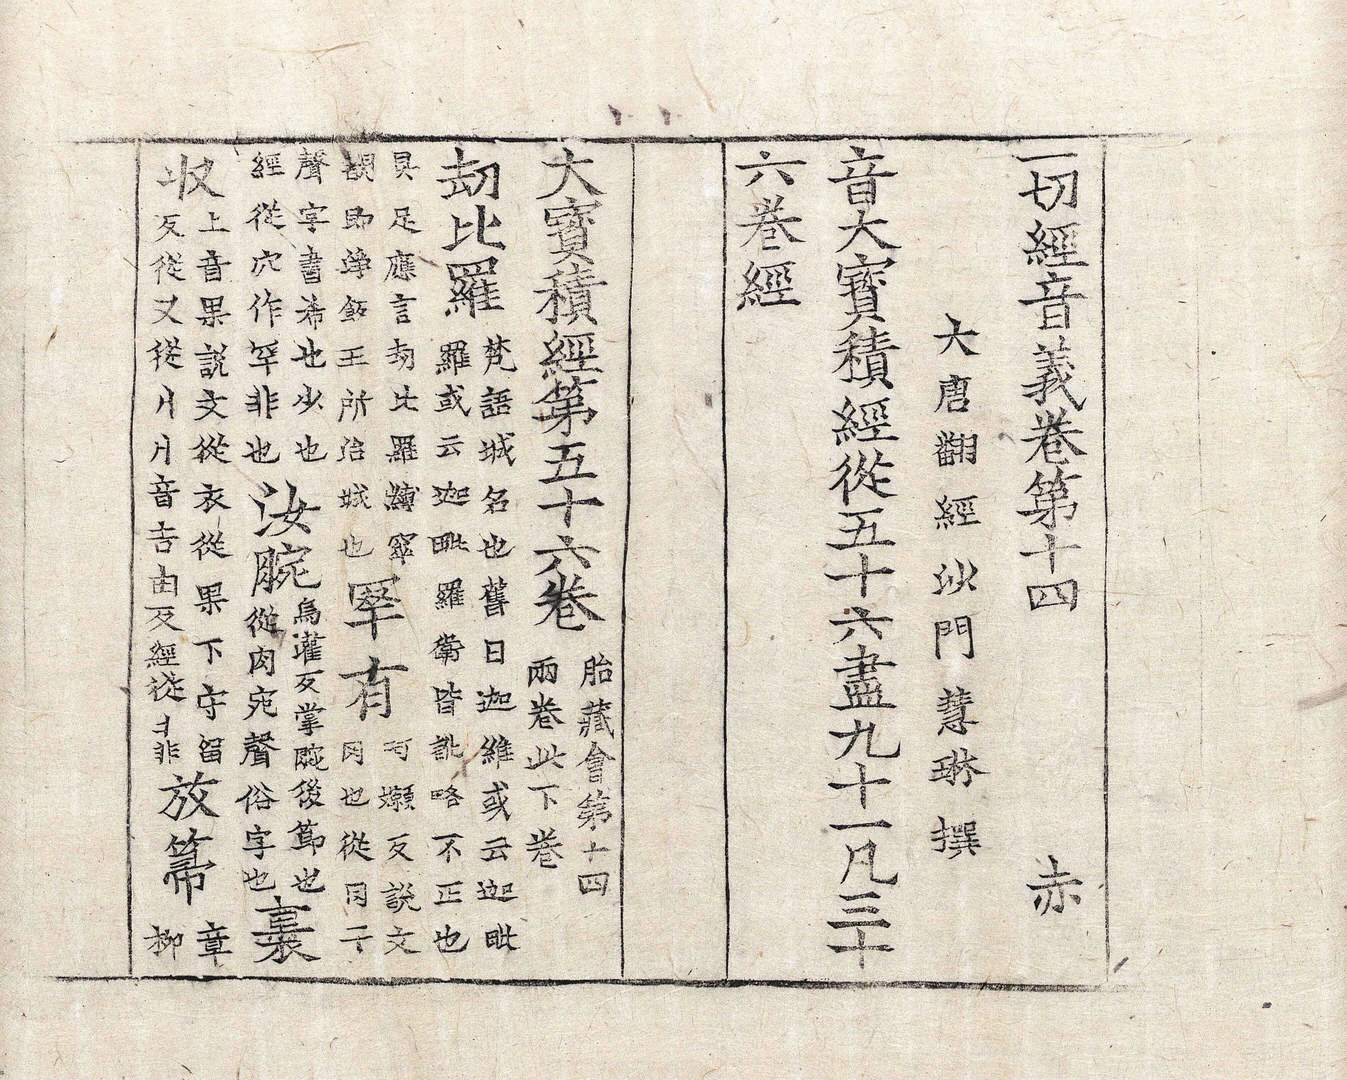 一切經音義卷第十四 赤
大唐翻經沙門慧琳撰
音大寶積經從五十六盡九十一凡三十
六卷經
大寶積經第五十六卷 胎藏會第十四
兩卷此下卷
劫比羅 梵語城名也舊曰迦維或云迦毗
羅或云迦毗羅衛皆訛略不正也
具足應言劫比羅縛窣
覩即淨飯王所治城也 罕有 呵嬾反說文
罔也從罔干
聲字書希也少也
經從穴作罕非也 汝腕 烏灌反掌腕後節也
從肉宛聲俗字也 裹
收 上音果說文從衣從果下守留
反從又從丩丩音吉由反經從丬非 放箒 章
柳